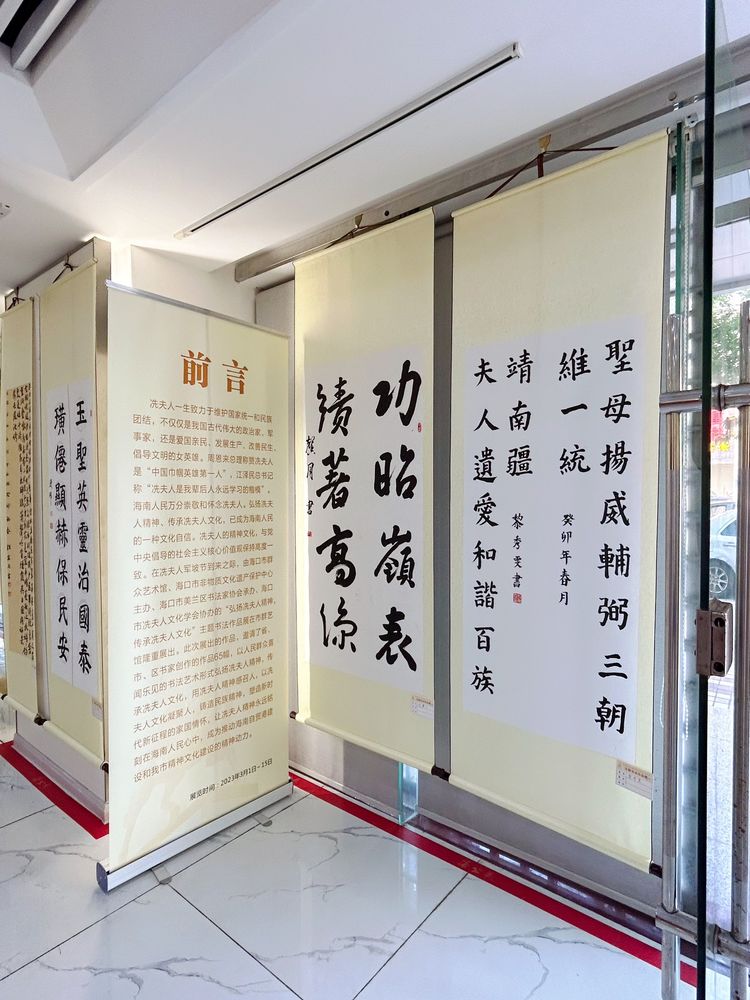 前言
冼夫人一生致力于维护国家统一和民族
团结，不仅仅是我国古代伟大的政治家、军
事家，还是爱国亲民、发展生产、改善民生、
倡导文明的女英雄。周恩来总理称赞冼夫人
是“中国巾帼英雄第一人”，江泽民总书记
称“冼夫人是我辈后人永远学习的楷模”。
海南人民万分崇敬和怀念冼夫人。弘扬冼夫
人精神、传承冼夫人文化，已成为海南人民
的一种文化自信。冼夫人的精神文化，与党
中央倡导的社会主义核心价值观保持高度一
致。在冼夫人军坡节到来之际，由海口市群
众艺术馆、海口市非物质文化遗产保护中心
主办、海口市美兰区书法家协会承办、海口
市冼夫人文化学会协办的“弘扬冼夫人精神，
传承冼夫人文化”主题书法作品展在市群艺
馆隆重展出。此次展出的作品，邀请了省、
市、区书家创作的作品65幅，以人民群众喜
闻乐见的书法艺术形式弘扬冼夫人精神，传
承冼夫人文化，用冼夫人精神感召人，以冼
夫人文化凝聚人，铸造民族精神，塑造新时
代新征程的家国情怀。让冼夫人精神永远铭
刻在海南人民心中，成为推动海南自贸港建
设和我市精神文化建设的精神动力。
展览时间：2023年3月1日－15日
聖母揚威輔弼三朝
維一統
癸卯年春月
靖南疆
黎秀雯書
夫人遺愛和諧百族
功昭嶺表
績著高涼
玉聖英靈治國泰
璜僊顯赫保民安